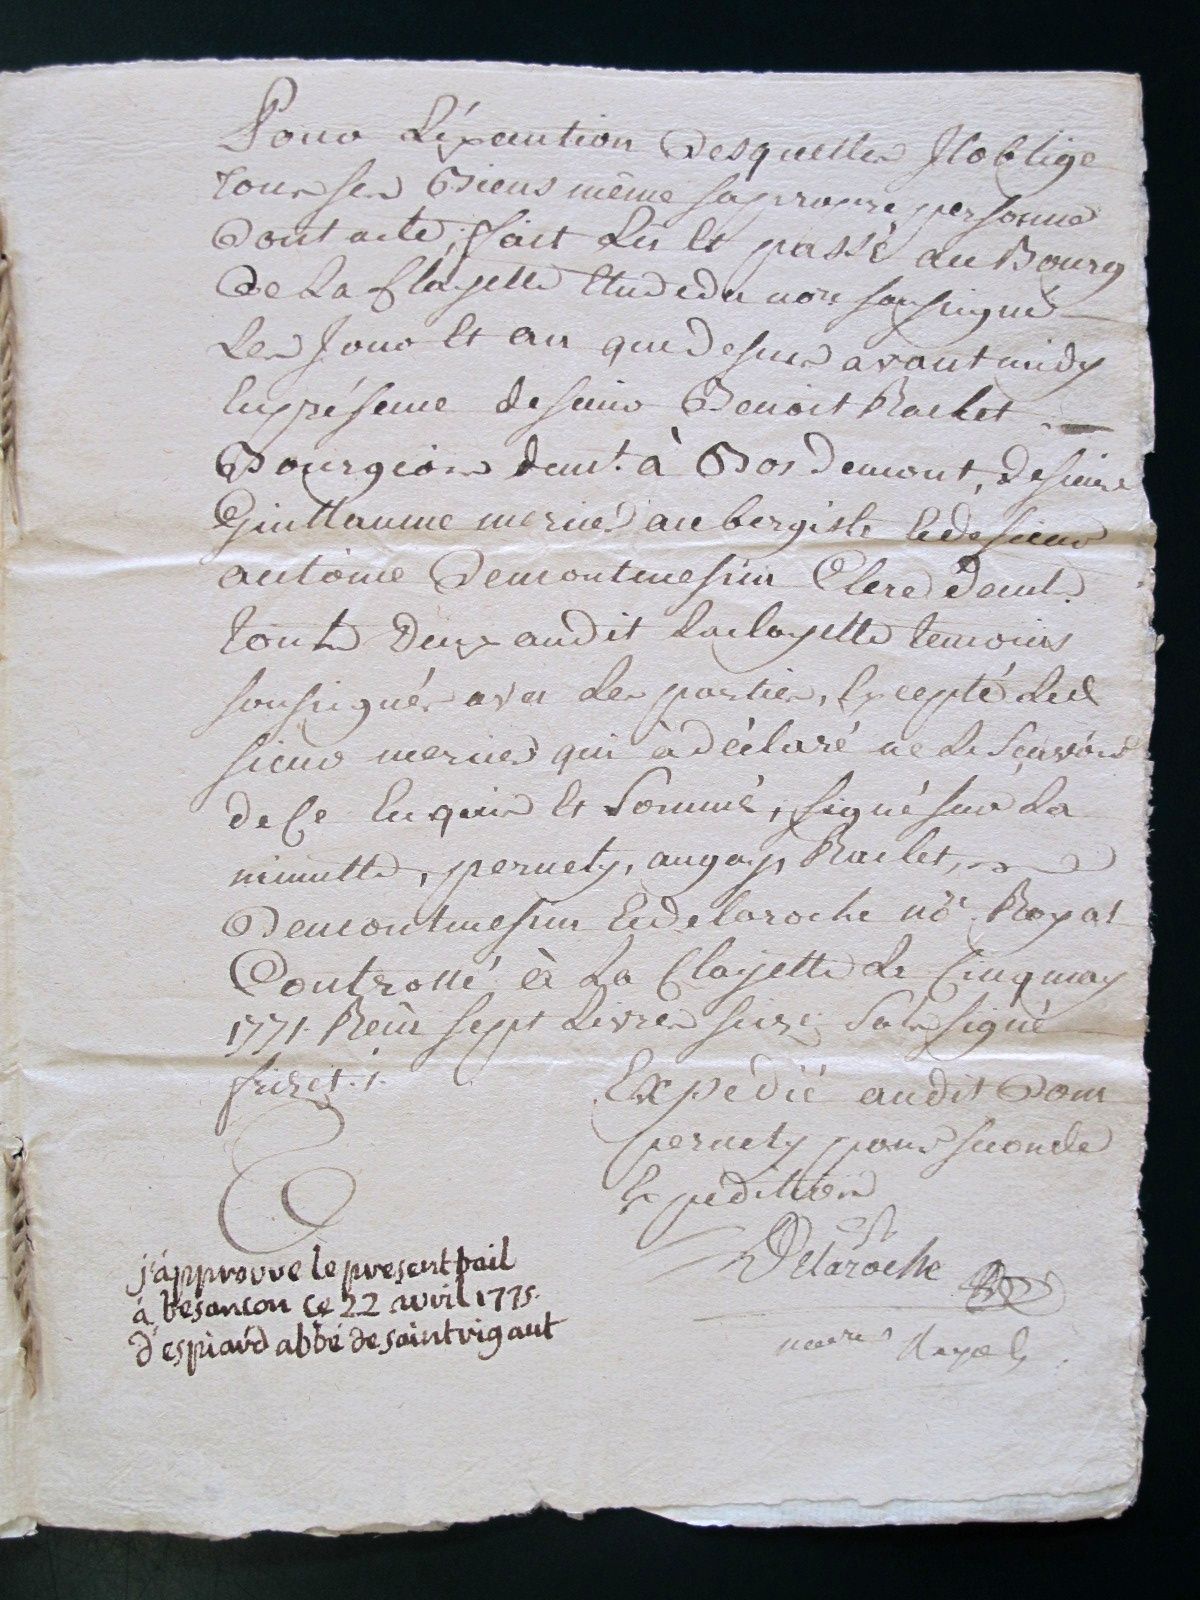 Pour L'éxecution Desquelles Il oblige
tous ses Biens même sa propre personne
Dont acte, fait Lu Et passé au Bourg
De La Clayette Etude du nore soussigné
Les Jour Et an que Dessus avant midy
En présence de sieur Benoist Raclet
Bourgeois demt. à Bosdemont, de sieur
Guillaume mernier aubergiste Et de sieur
antoine Demontmessin Clerc demt.
tous Deux audit La Clayette temoins
soussignés avec Les parties, Excepté Led.
sieur mernier qui à déclaré ne Le Sçavoir
de Ce Enquis Et Sommé, signé sur La
minutte, pernety, augay, Raclet,
Demontmessin Et delaroche nore. Royal
Controllé à La Clayette Le Cinq may
1771. Reçu sept Livres seize Sols signé
frizet ./.
Expédié audit Dom
pernety pour seconde
Expedition
Delaroche
nore Royal
j'approuve le present bail
à besancon ce 22 avril 1775.
d'espiard abbé de saint vigaut